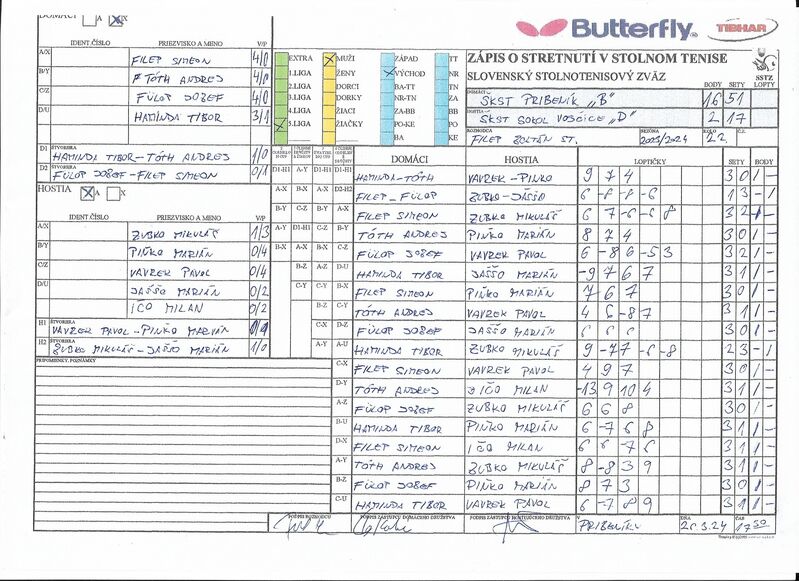 DOMÁCI A X
Butterfly TIBHAR
IDENT.ČÍSLO PRIEZVISKO A MENO V/P
A/X FILEP SIMEON 4/0
B/Y TÓTH ANDREJ 4/0
C/Z FÜLÖP JOZEF 4/0
D/U HAMINDA TIBOR 3/1
D1 ŠTVORHRA HAMINDA TIBOR-TÓTH ANDREJ 1/0
D2 ŠTVORHRA FÜLÖP JOZEF-FILEP SIMEON 0/1
HOSTIA A X
IDENT.ČÍSLO PRIEZVISKO A MENO V/P
A/X ZUBKO MIKULÁŠ 1/3
B/Y PIŇKO MARIÁN 0/4
C/Z VAVREK PAVOL 0/4
D/U JAŠŠO MARIÁN 0/2
IČO MILAN 0/2
H1 ŠTVORHRA VAVREK PAVOL-PIŇKO MARIÁN 0/1
H2 ŠTVORHRA ZUBKO MIKULÁŠ-JAŠŠO MARIÁN 1/0
PRIPOMIENKY, POZNÁMKY
EXTRA MUŽI ZÁPAD TT
1.LIGA ŽENY VÝCHOD NR
2.LIGA DORCI BA-TT TN
3.LIGA DORKY NR-TN ZA
4.LIGA ŽIACI ZA-BB BB
5.LIGA ŽIAČKY PO-KE PO
BA KE
ZÁPIS O STRETNUTÍ V STOLNOM TENISE
SLOVENSKÝ STOLNOTENISOVÝ ZVÄZ
SSTZ
BODY SETY LOPTY
DOMÁCI SKST PRIBENÍK „B" 16 51
HOSTIA SKST SOKOL VOJČICE „D" 2 17
ROZHODCA FILEP ZOLTÁN ST. SEZÓNA 2023/2024 KOLO 22. Č.Z.
DOMÁCI HOSTIA LOPTIČKY SETY BODY
D1-H1 A-Y D1-H1 HAMINDA-TÓTH VAVREK-PIŇKO 9 7 4 3 0 1 -
A-X B-X D2-H2 FILEP-FÜLÖP ZUBKO-JAŠŠO 6 -8 -8 -6 1 3 - 1
B-Y C-Z A-X FILEP SIMEON ZUBKO MIKULÁŠ 6 -7 6 -6 8 3 2 1 -
A-Y D1-H1 C-Z B-Y TÓTH ANDREJ PIŇKO MARIÁN 8 7 4 3 0 1 -
B-X A-X B-X C-Z FÜLÖP JOZEF VAVREK PAVOL 6 -8 6 -5 3 3 2 1 -
B-Z A-Z D-U HAMINDA TIBOR JAŠŠO MARIÁN -9 7 6 7 3 1 1 -
C-Y C-Y B-X FILEP SIMEON PIŇKO MARIÁN 7 6 7 3 0 1 -
B-Z C-Y TÓTH ANDREJ VAVREK PAVOL 4 6 -8 7 3 1 1 -
C-X D-Z FÜLÖP JOZEF JAŠŠO MARIÁN 6 6 6 3 0 1 -
A-Y A-U HAMINDA TIBOR ZUBKO MIKULÁŠ 9 -7 7 -6 -8 2 3 - 1
C-X FILEP SIMEON VAVREK PAVOL 4 9 7 3 0 1 -
D-Y TÓTH ANDREJ IČO MILAN -13 9 10 4 3 1 1 -
A-Z FÜLÖP JOZEF ZUBKO MIKULÁŠ 6 6 8 3 0 1 -
B-U HAMINDA TIBOR PIŇKO MARIÁN 6 -7 6 8 3 1 1 -
D-X FILEP SIMEON IČO MILAN 6 6 -7 6 3 1 1 -
A-Y TÓTH ANDREJ ZUBKO MIKULÁŠ 8 -8 3 9 3 1 1 -
B-Z FÜLÖP JOZEF PIŇKO MARIÁN 8 7 3 3 0 1 -
C-U HAMINDA TIBOR VAVREK PAVOL 6 -7 8 9 3 1 1 -
PODPIS ROZHODCU PODPIS ZÁSTUPCU DOMÁCEHO DRUŽSTVA PODPIS ZÁSTUPCU HOSŤUJÚCEHO DRUŽSTVA V PRIBENÍKU DŇA ČAS 17 30